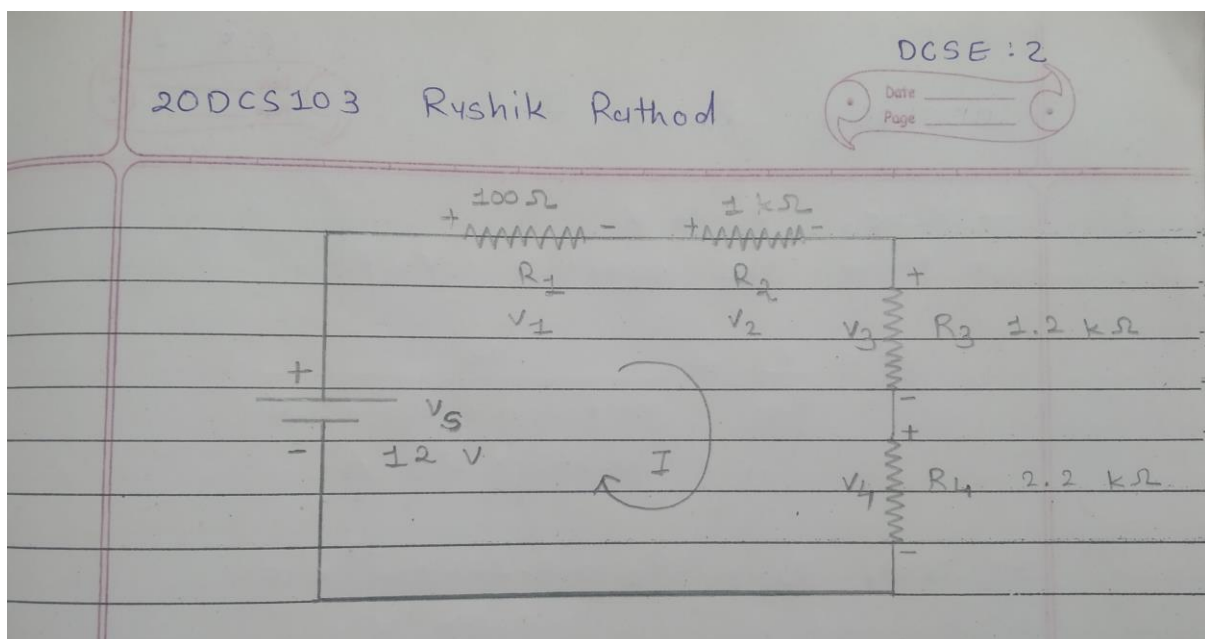 DCSE : 2
20DCS103 Rushik Rathod
Date
Page
100 Ω 1 kΩ
+ - + -
R1 R2
V1 V2
+
V3 R3 1.2 kΩ
-
+
Vs
12 V
-
I
+
V4 R4 2.2 kΩ
-